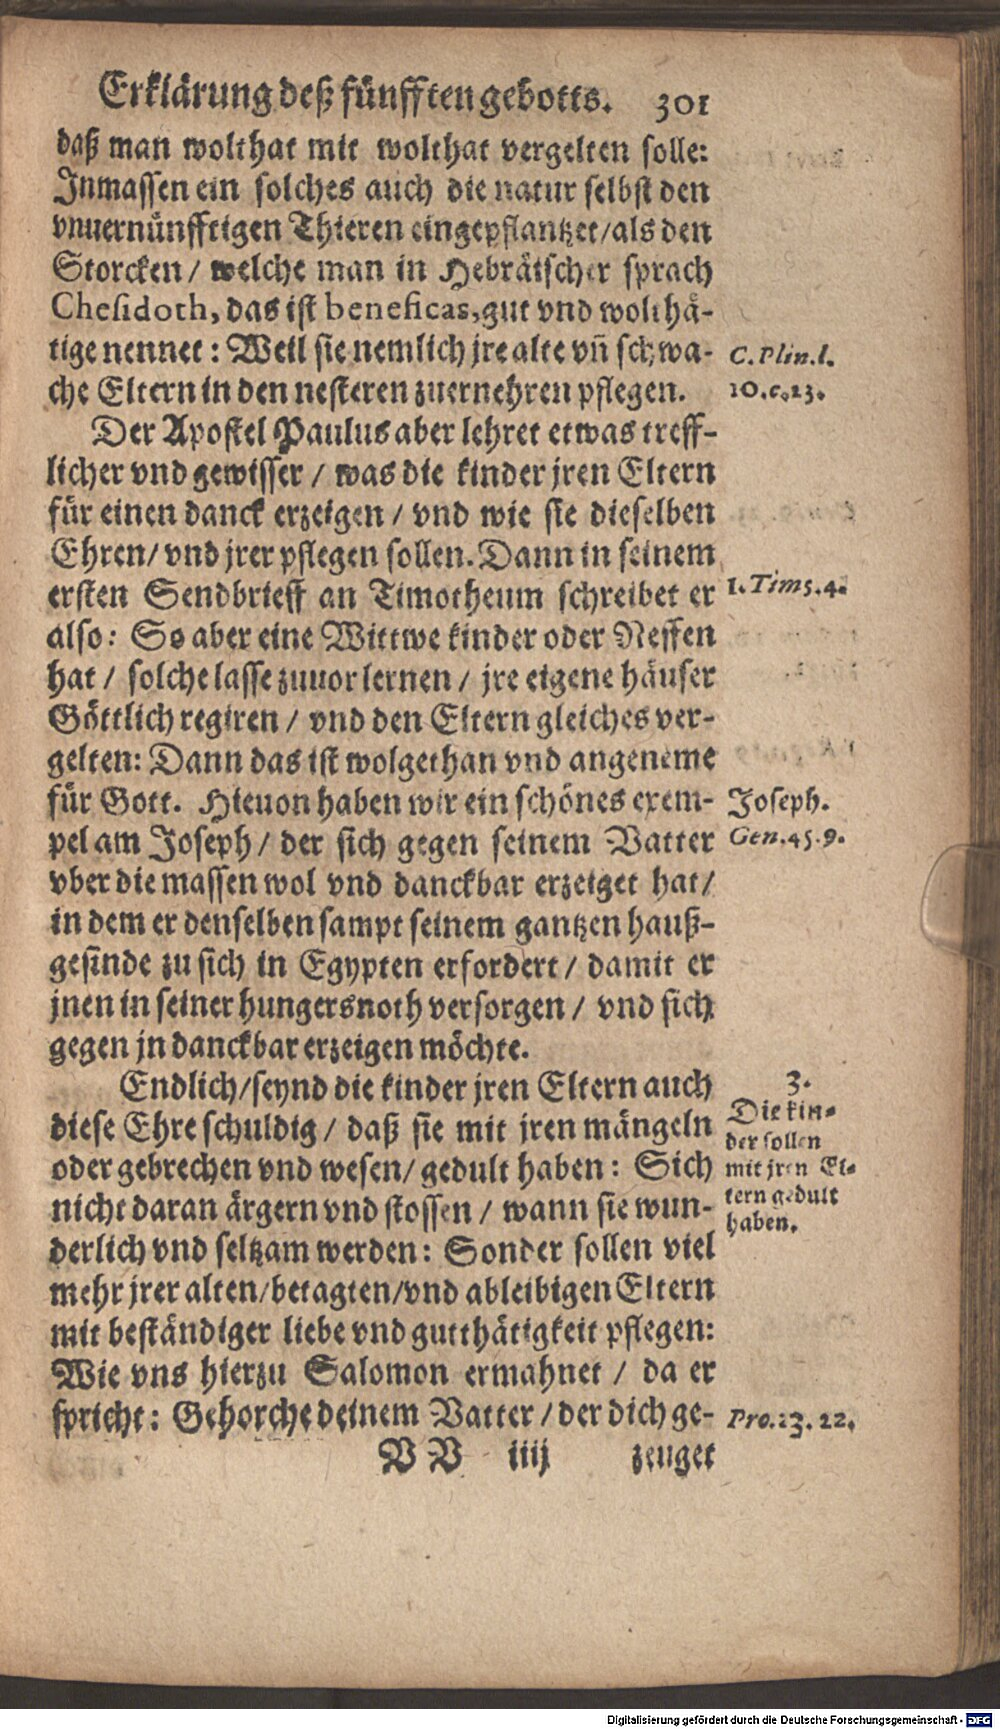 Erklärung deß fünfften gebotts. 301
daß man wolthat mit wolthat vergelten solle:
Inmassen ein solches auch die natur selbst den
vnuernünfftigen Thieren eingepflantzet/als den
Storcken/ welche man in Hebräischer sprach
Chesidoth, das ist beneficas, gut vnd wolthä-
tige nennet: Weil sie nemlich jre alte vñ schwa-
che Eltern in den nesteren zuernehren pflegen.
C. Plin. l.
10. c. 23.
Der Apostel Paulus aber lehret etwas treff-
licher vnd gewisser / was die kinder jren Eltern
für einen danck erzeigen / vnd wie sie dieselben
Ehren/ vnd jrer pflegen sollen. Dann in seinem
ersten Sendbrieff an Timotheum schreibet er
1. Tim 5. 4.
also: So aber eine Wittwe kinder oder Neffen
hat / solche lasse zuuor lernen / jre eigene häuser
Göttlich regiren / vnd den Eltern gleiches ver-
gelten: Dann das ist wolgethan vnd angeneme
für Gott. Hieuon haben wir ein schönes exem-
pel am Joseph / der sich gegen seinem Vatter
Joseph.
Gen. 45. 9.
vber die massen wol vnd danckbar erzeiget hat/
in dem er denselben sampt seinem gantzen hauß-
gesinde zu sich in Egypten erfordert / damit er
jnen in seiner hungersnoth versorgen / vnd sich
gegen jn danckbar erzeigen möchte.
Endlich/seynd die kinder jren Eltern auch
diese Ehre schuldig / daß sie mit jren mängeln
oder gebrechen vnd wesen/ gedult haben: Sich
nicht daran ärgern vnd stossen / wann sie wun-
derlich vnd seltzam werden: Sonder sollen viel
3.
Die kin-
der sollen
mit jren El-
tern gedult
haben.
mehr jrer alten/betagten/vnd ableibigen Eltern
mit beständiger liebe vnd gutthätigkeit pflegen:
Wie vns hierzu Salomon ermahnet / da er
spricht: Gehorche deinem Vatter / der dich ge-
Pro. 23. 22.
VV iiij zeuget
Digitalisierung gefördert durch die Deutsche Forschungsgemeinschaft - DFG